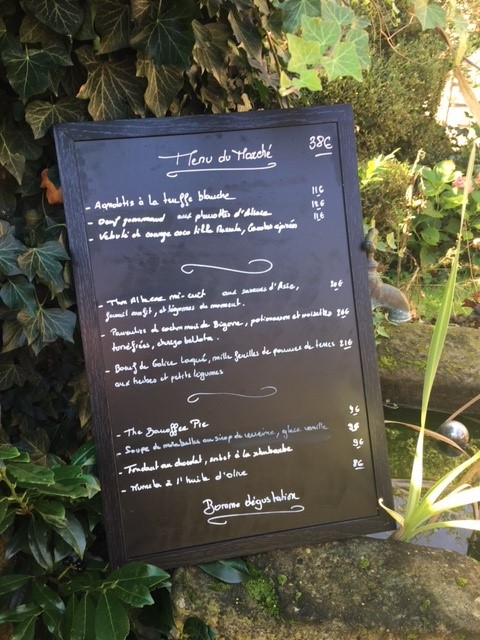 Menu du Marché 38€
- Agnolotis à la truffe blanche 11€
- Oeuf gourmand aux d'Alsace 12€
- Velouté de orange coco , épicées 11€
- Thon Albacore mi-cuit aux saveurs d'Asie, 20€
fenouil confit, et légumes du moment.
- de cochon noir de Bigorre, potimarron et noisettes 26€
torréfiées, chorizo bellota.
- Boeuf de Galice laqué, mille feuilles de pommes de terres 21€
aux herbes et petits légumes
- The Banoffee Pie 9€
- Soupe de mirabelles au sirop de verveine, glace vanille
- Fondant au chocolat, sorbet à la rhubarbe 9€
- à l'huile d'olive 8€
Bonne dégustation